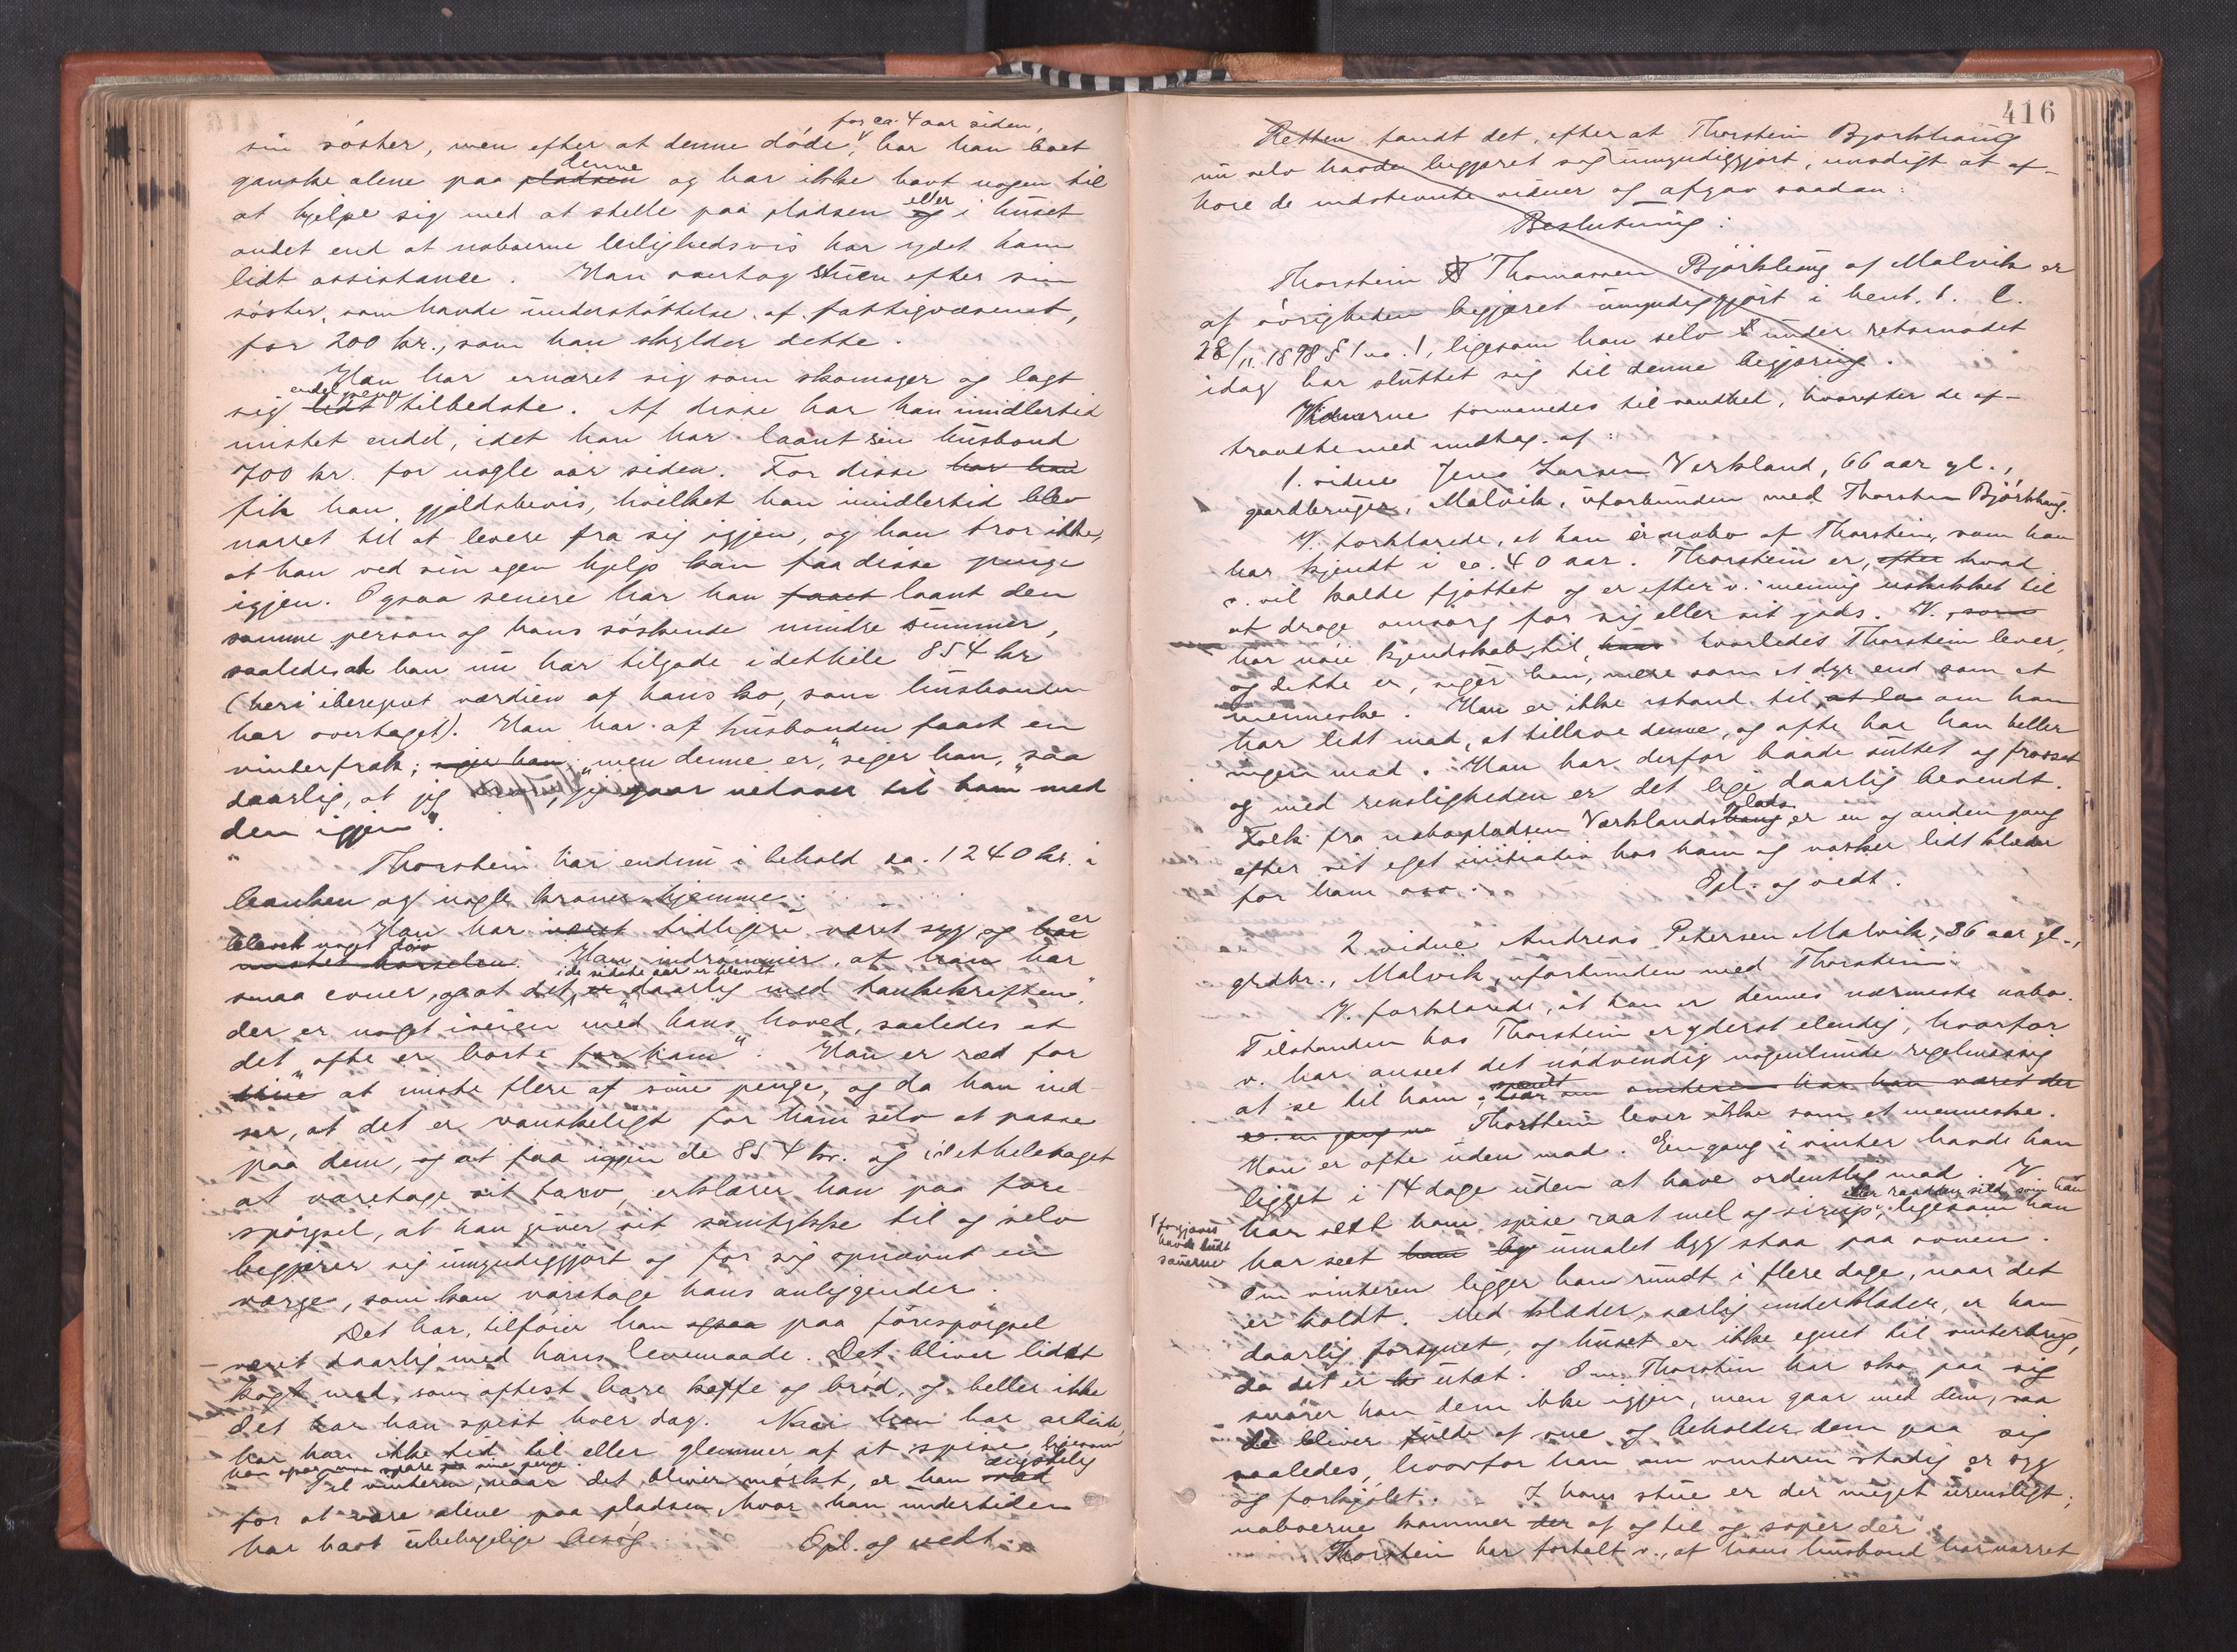 for ca. 4 aar siden,
sin søster, men efter at denne døde, har han boet
ganske alene paa pladsen denne og har ikke havt nogen til
at hjelpe sig med at stelle paa pladsen og eller i huset
andet end at naboerne leilighedsvis har ydet ham
lidt assistance. Han overtog stuen efter sin
søster, som havde understøttelse af fattigvæsenet,
for 200 kr., som han skylder dette.
Han har ernæret sig som skomager og lagt
sig lidt endel penge tilbedste. Af disse har han imidlertid
mistet endel, idet han har laant sin husbond
700 kr. for nogle aar siden. For disse har han
fik han gjældsbevis, hvilket han imidlertid blev
narret til at levere fra sig igjen, og han tror ikke,
at han ved sin egen hjelp kan faa disse penge
igjen. Ogsaa senere har han faaet laant den
samme person og hans søskende mindre summer,
saaledes at han nu har tilgode idethele 854 kr
(heri iberegnet værdien af hans ko, som husbonden
har overtaget). Han har af husbonden faaet en
vinterfrak; siger han "men denne er," siger han, "saa
daarlig, at jeg gaar nedover til ham med
den igjen".
Thorstein har endnu i behold ca. 1240 kr. i
banken og nogle kroner hjemme.
Han har været tidligere været syg og har er
mistet hørselen blevet noget døv. Han indrømmer, at han har
smaa evner, og at det "er i de sidste aar er blevet daarlig med tankekraften",
der er noget iveien med hans hoved, saaledes at
det "ofte er borte for ham". Han er ræd for
sine at miste flere af sine penge, og da han ind-
ser, at det er vanskeligt for ham selv at passe
paa dem, og at faa igjen de 854 kr. og idetheletaget
at varetage sit tarv, erklærer han paa fore
spørgsel, at han giver sit samtykke til og selv
begjærer sig umyndiggjort og for sig opnævnt en
værge, som kan varetage hans anliggender.
Det har, tilføier han ogsaa paa forespørgsel
været daarlig med hans levemaade. Det bliver lidet
kogt mad, som oftest bare kaffe og brød, og heller ikke
det har han spist hver dag. Naar han har arbeide,
har han ikke tid til eller glemmer af at spise, ligesom
han spare paa sine penge.
Til vinteren, naar det bliver mørkt, er han ræd ængstelig
for at være alene paa pladsen, hvor han undertiden
har havt ubehagelige besøg. Opl. og vedt.
416
Retten fandt det, efter at Thorstein Bjørkhaug
nu selv havde begjæret sig umyndiggjort, unødigt at af-
høre de indstevnte vidner og afgav saadan:
Beslutning:
Thorstein T Thomassen Bjørkhaug af Malvik er
af øvrigheden begjæret umyndiggjort i henh. t. l.
28/11 1898 § 1 no. 1, ligesom han selv under retsmødet
idag har sluttet sig til denne begjæring.
Vidnerne formanedes til sandhet, hvorefter de af-
traadte med undtag. af:
1. vidne Jens Larsen Verkland, 66 aar gl.,
gaardbruger, Malvik, uforbunden med Thorstein Bjørkhaug.
V. forklarede, at han er nabo af Thorstein, som han
har kjendt i ca. 40 aar. Thorstein er, efter hvad
v. vil kalde fjottet og er efter v. mening uskikket til
at drage omsorg for sig eller sit gods. V., som
har nøie kjendskab til, hans hvorledes Thorstein lever,
og dette er, siger han, mere som et dyr end som et
menneske. Han er ikke istand til, at la om han
har lidt mad, at tillave denne, og ofte har han heller
ingen mad. Han har derfor baade sultet og frosset
og med rensligheden er det lige daarlig bevendt.
Folk fra nabopladsen Verklandshaug plads er en og anden gang
efter sit eget initiativ hos ham og vasker lidt klæder
for ham osv. Opl. og vedt.
2. vidne Andreas Petersen Malvik, 36 aar gl.,
grdbr., Malvik, uforbunden med Thorstein.
V. forklarede, at han er dennes nærmeste nabo.
Tilstanden hos Thorstein er yderst elendig, hvorfor
v. har anseet det nødvendig nogenlunde regelmæssig
at se til ham, specielt om vinteren har han været der
en gang Thorstein lever ikke som et menneske.
Han er ofte uden mad. Engang i vinter havde han
ligget i 14 dage uden at have ordentlig mad. V.
har seet ham spise raat mel og sirup, eller raadden sild, som han ligesom han
forgjæves havde budt sauerne
har seet ham by umalet byg staa paa ovnen.
Om vinteren ligger han rundt i flere dage, naar det
er koldt. Med klæder, særlig underklæder, er han
daarlig forsynet, og huset er ikke egnet til vinterbrug,
da det er utæt. Om Thorstein har sko paa sig
snører han dem ikke igjen, men gaar med dem, saa
de bliver fulde af sne og beholder dem paa sig
saaledes, hvorfor han om vinteren stadig er syg
og forkjølet. I hans stue er der meget urensligt;
naboerne kommer der af og til og soper der.
Thorstein har fortalt v., at hans husbond har narret